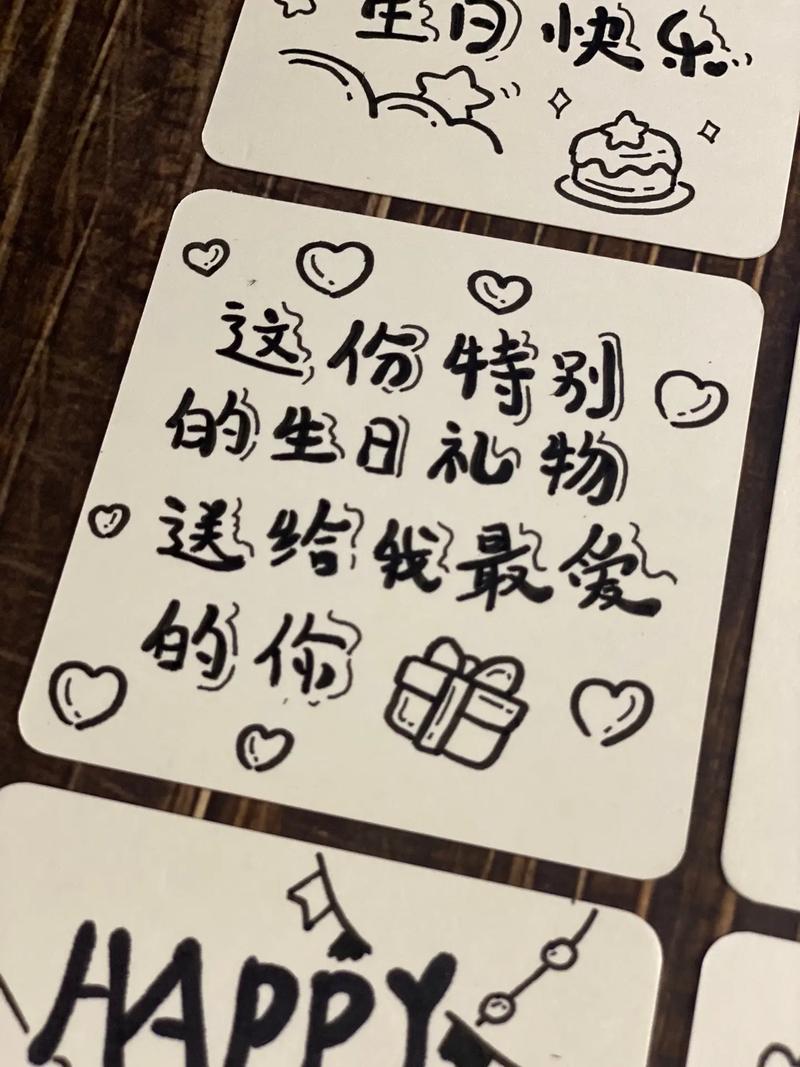 生日快乐
这份特别
的生日礼物
送给我最愛
的你
HAPPY